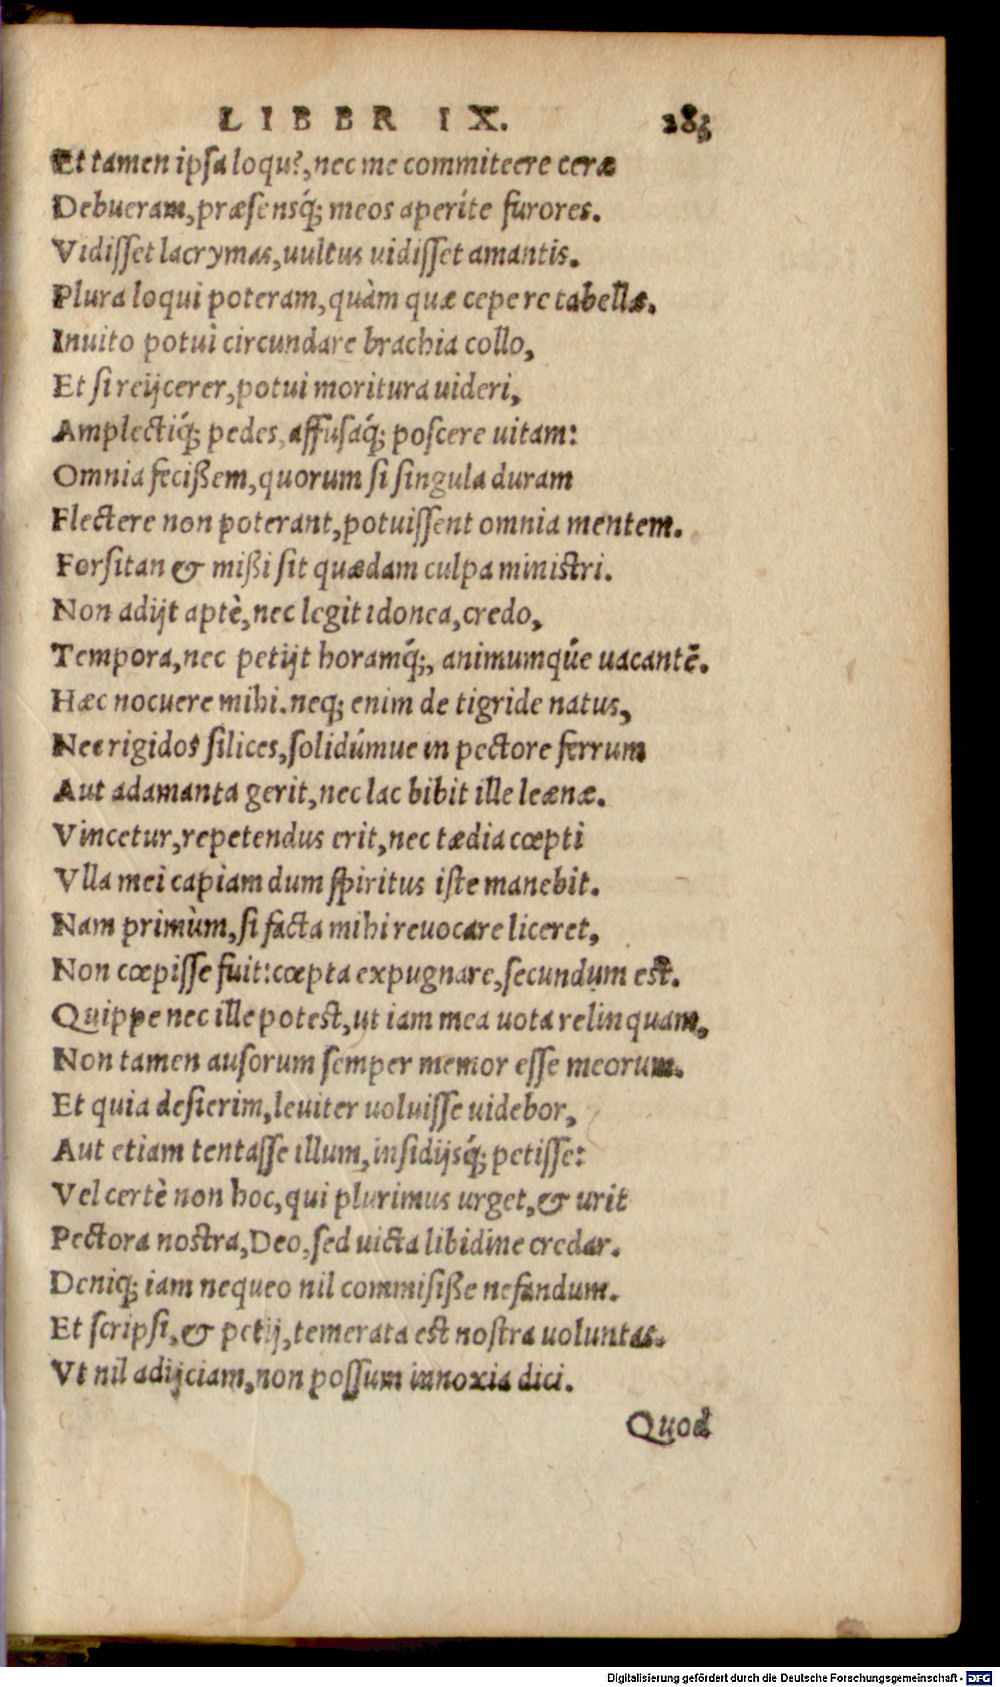 LIBER IX. 283
Et tamen ipsa loqui, nec me commiteere ceræ
Debueram, præsensq́; meos aperíte furores.
Vidisset lacrymas, uultus uidisset amantis.
Plura loqui poteram, quàm quæ cepere tabellæ.
Inuito potui circundare brachia collo,
Et si reijcerer, potui moritura uideri,
Amplectiq́; pedes, affusaq́; poscere uitam:
Omnia fecißem, quorum si singula duram
Flectere non poterant, potuissent omnia mentem.
Forsitan & mißi sit quædam culpa ministri.
Non adijt aptè, nec legit idonea, credo,
Tempora, nec petijt horamq́;, animumqúe uacantē.
Hæc nocuere mihi. neq; enim de tigride natus,
Nec rigidos silices, solidúmue in pectore ferrum
Aut adamanta gerit, nec lac bibit ille leænæ.
Vincetur, repetendus erit, nec tædia cœpti
Vlla mei capiam dum spiritus iste manebit.
Nam primùm, si facta mihi reuocare liceret,
Non cœpisse fuit: cœpta expugnare, secundum est.
Quippe nec ille potest, ut iam mea uota relinquam,
Non tamen ausorum semper memor esse meorum.
Et quia desierim, leuiter uoluisse uidebor,
Aut etiam tentasse illum, insidijsq́; petisse:
Vel certè non hoc, qui plurimus urget, & urit
Pectora nostra, Deo, sed uicta libidine credar.
Deniq; iam nequeo nil commisiße nefandum.
Et scripsi, & petij, temerata est nostra uoluntas.
Vt nil adijciam, non possum innoxia dici.
Quod
Digitalisierung gefördert durch die Deutsche Forschungsgemeinschaft - DFG